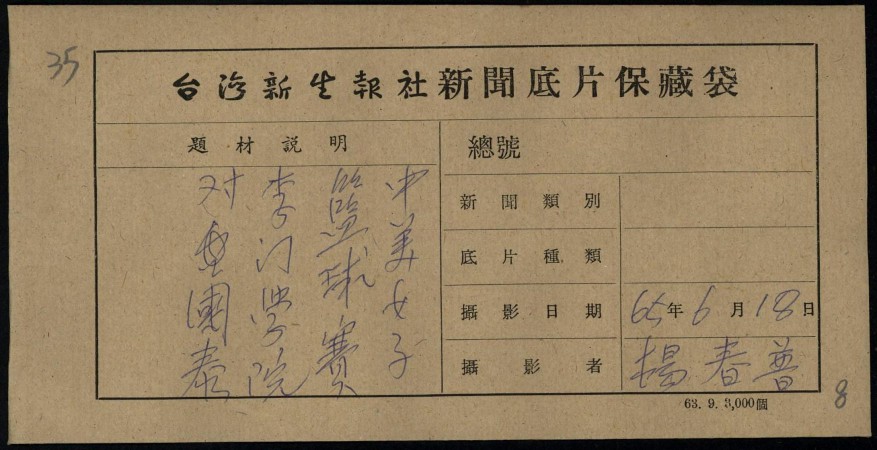 35
台灣新生報社新聞底片保藏袋
題材説明
中美女子
籃球賽
李门學院
对 國泰
總號
新聞類別
底片種類
攝影日期
65年6月18日
攝影者
楊春普
63. 9. 3,000個
8